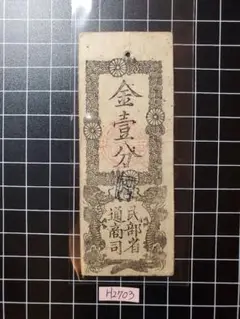 金壹分
民部省
通商司
H2703